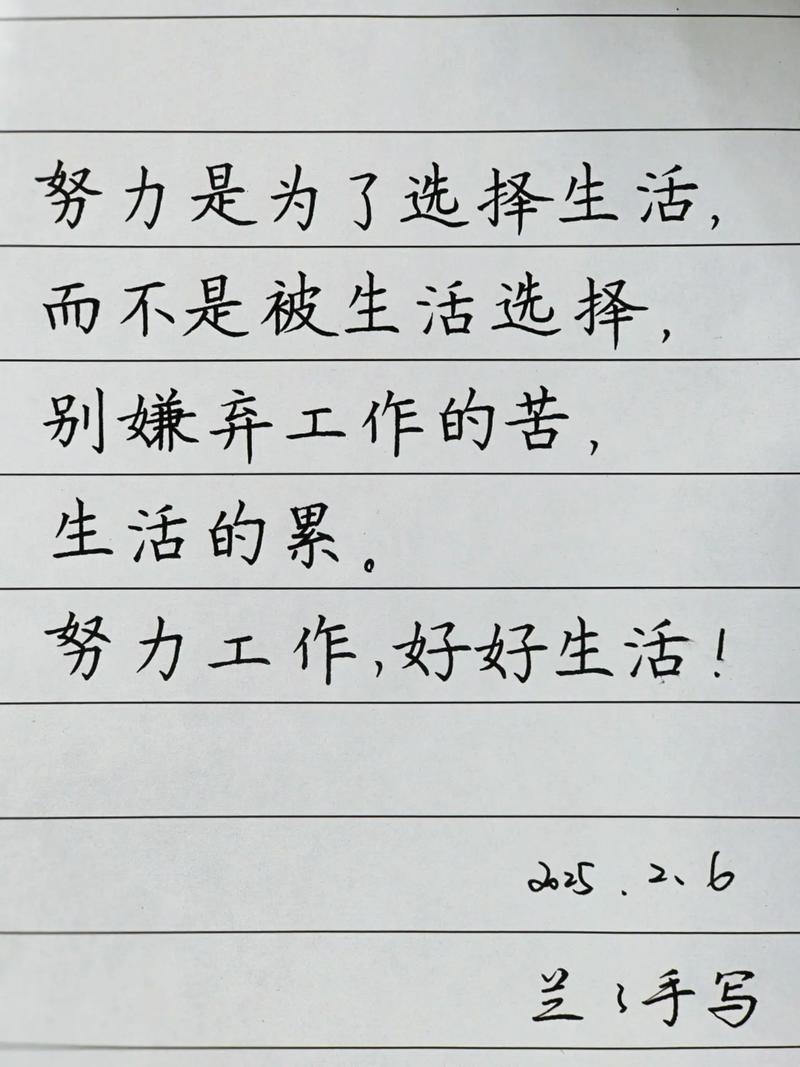 努力是为了选择生活,
而不是被生活选择,
别嫌弃工作的苦,
生活的累。
努力工作,好好生活!
2025.2.6
兰々手写